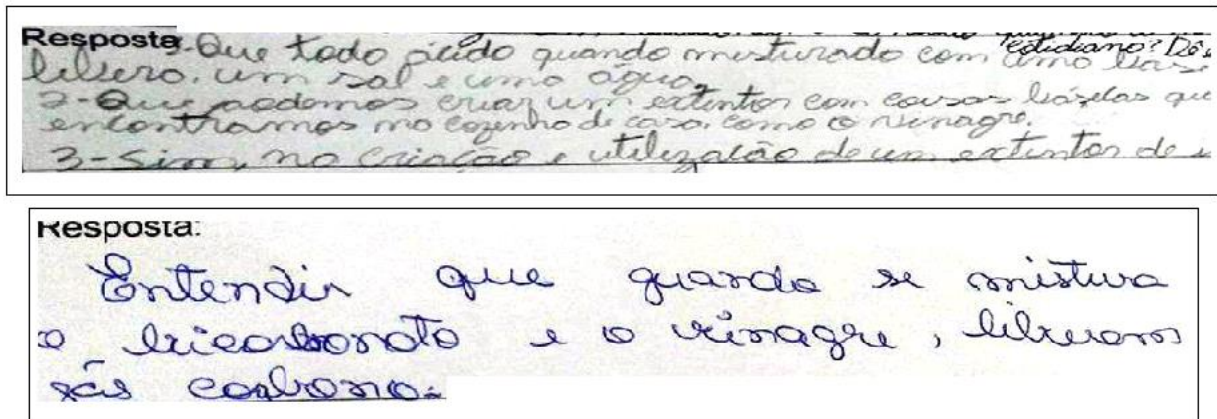 Resposta 1-Que todo ácido quando misturado com uma base
cotidiano? Dê
libera um sal e uma água.
2-Que podemos criar um extintor com coisas básicas que
encontramos na cozinha de casa, como o vinagre.
3-Sim, na criação e utilização de um extintor de
Resposta:
Entendir que quando se mistura
o bicarbonato e o vinagre, liberam
gás carbono.